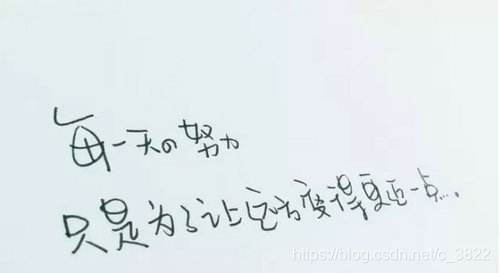 每一天の努力
只是为了让远方变得更近一点....
https://blog.csdn.net/c_3822